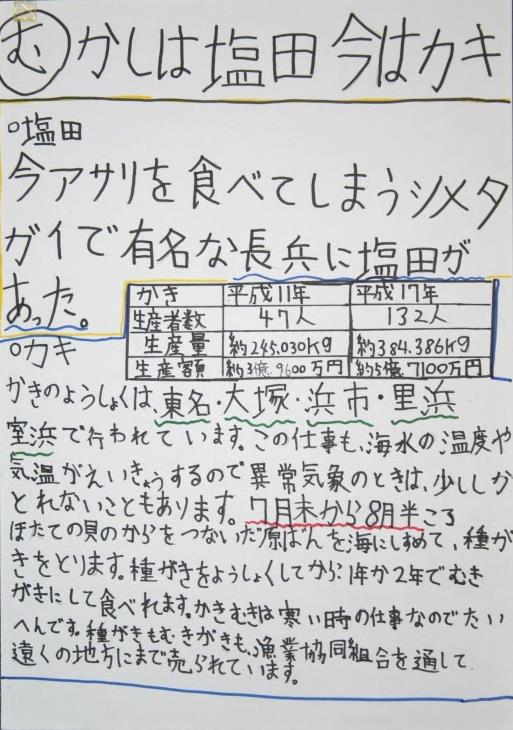 むかしは塩田 今はカキ
○塩田
今アサリを食べてしまうツメタ
ガイで有名な長兵に塩田が
あった。
かき 平成11年 平成17年
生産者数 47人 132人
生産量 約245.030kg 約384.386kg
生産額 約3億.9600万円 約5億7100万円
○カキ
かきのようしょくは、東名・大塚・浜市・里浜
室浜で行われています。この仕事も、海水の温度や
気温がえいきょうするので異常気象のときは、少ししか
とれないこともあります。7月末から8月半ころ
ほたての貝のからをつないだ原ばんを海にしずめて、種が
きをとります。種がきをようしょくしてから1年か2年でむき
がきにして食べれます。かきむきは寒い時の仕事なのでたい
へんです。種がきもむきがきも、漁業協同組合を通して
遠くの地方にまで売られています。